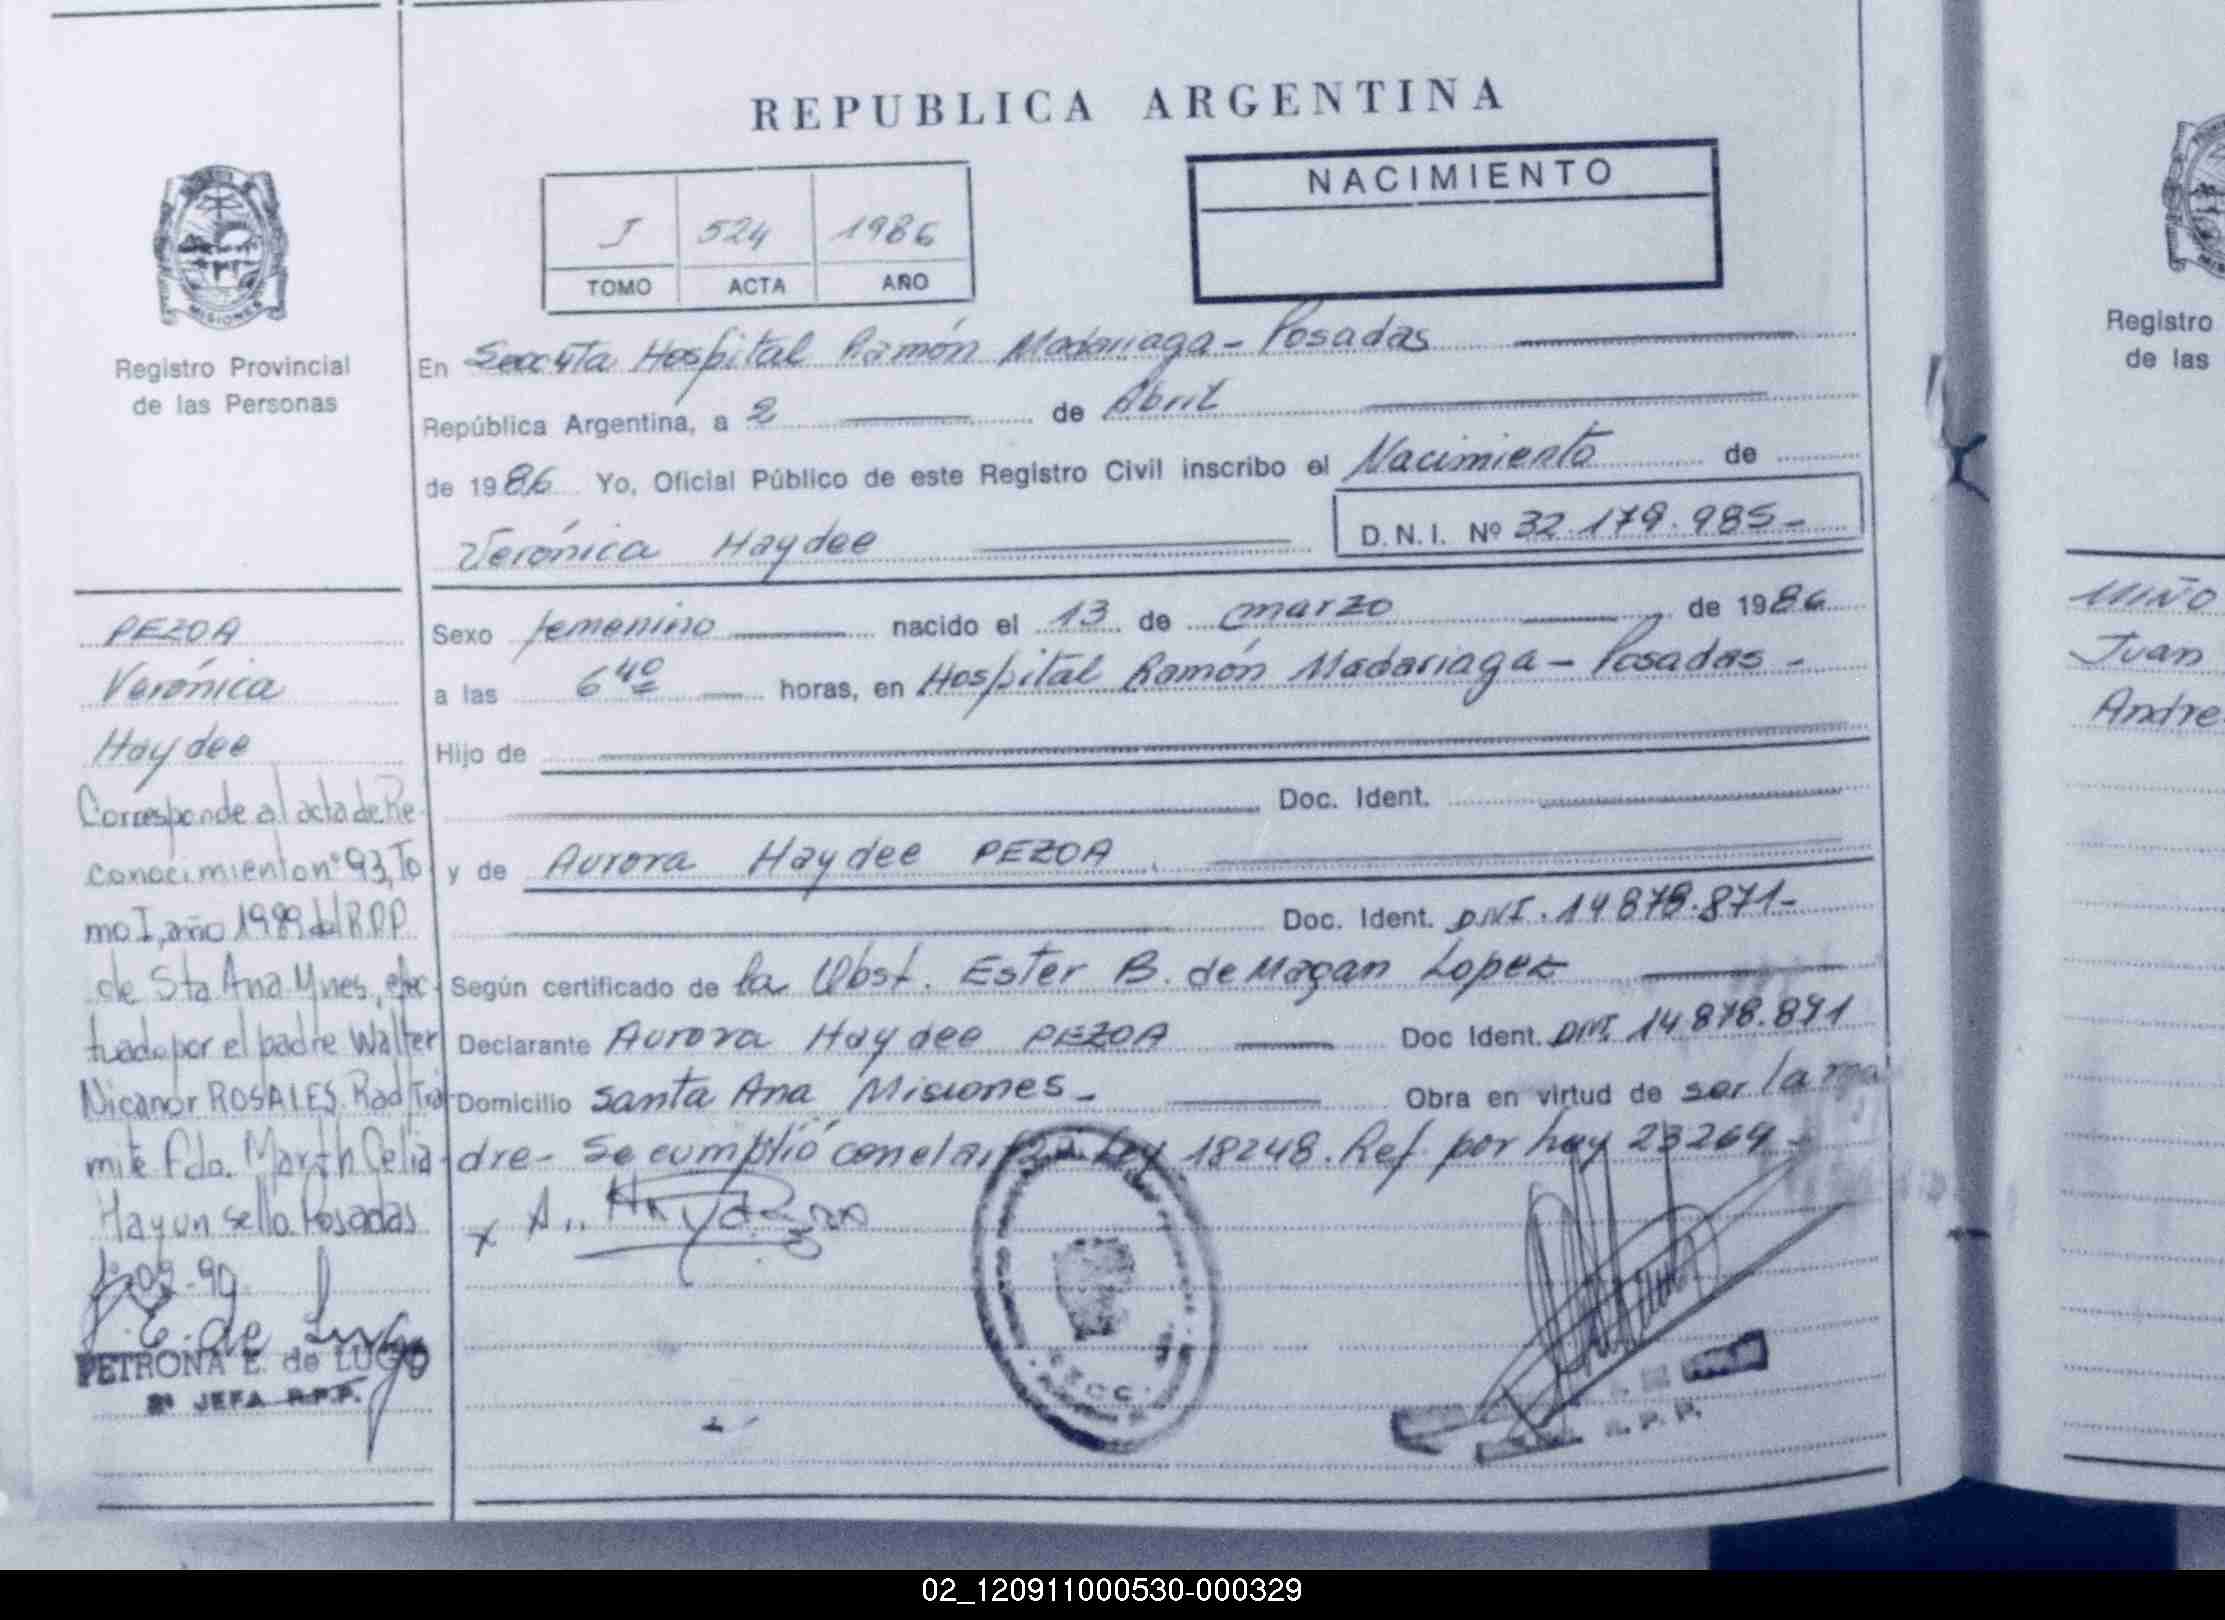 REPUBLICA ARGENTINA
NACIMIENTO
I 524 1986
TOMO ACTA AÑO
MISIONES
Registro Provincial
de las Personas
En Secc 4ta Hospital Ramón Madariaga - Posadas
República Argentina, a 2 de Abril
de 1986 Yo, Oficial Público de este Registro Civil inscribo el Nacimiento de
Verónica Haydee D.N.I. Nº 32.179.985-
Sexo femenino nacido el 13 de marzo de 1986
a las 6 40 horas, en Hospital Ramón Madariaga - Posadas -
Hijo de
Doc. Ident.
y de Aurora Haydee PEZOA
Doc. Ident. DNI. 14.878.871-
Según certificado de la Obst. Ester B. de Magan Lopez
Declarante Aurora Haydee PEZOA Doc Ident. DNI. 14.878.871
Domicilio Santa Ana Misiones - Obra en virtud de ser la ma
dre - Se cumplió con el art Ley 18248. Ref. por Ley 23264 -
PEZOA
Verónica
Haydee
Corresponde al acta de Re-
conocimiento nº 93, To
mo I, año 1989 del R.P.P.
de Sta Ana Mnes, efec-
tuado por el padre Walter
Nicanor ROSALES. Rad Trá-
mite Fdo. Marth Celia
Hay un sello. Posadas
P. E. de Lugo
PETRONA E. de LUGO
2ª JEFA R.P.P.
R. P. P.
Registro
de las
MIÑO
Juan
Andre
02_120911000530-000329